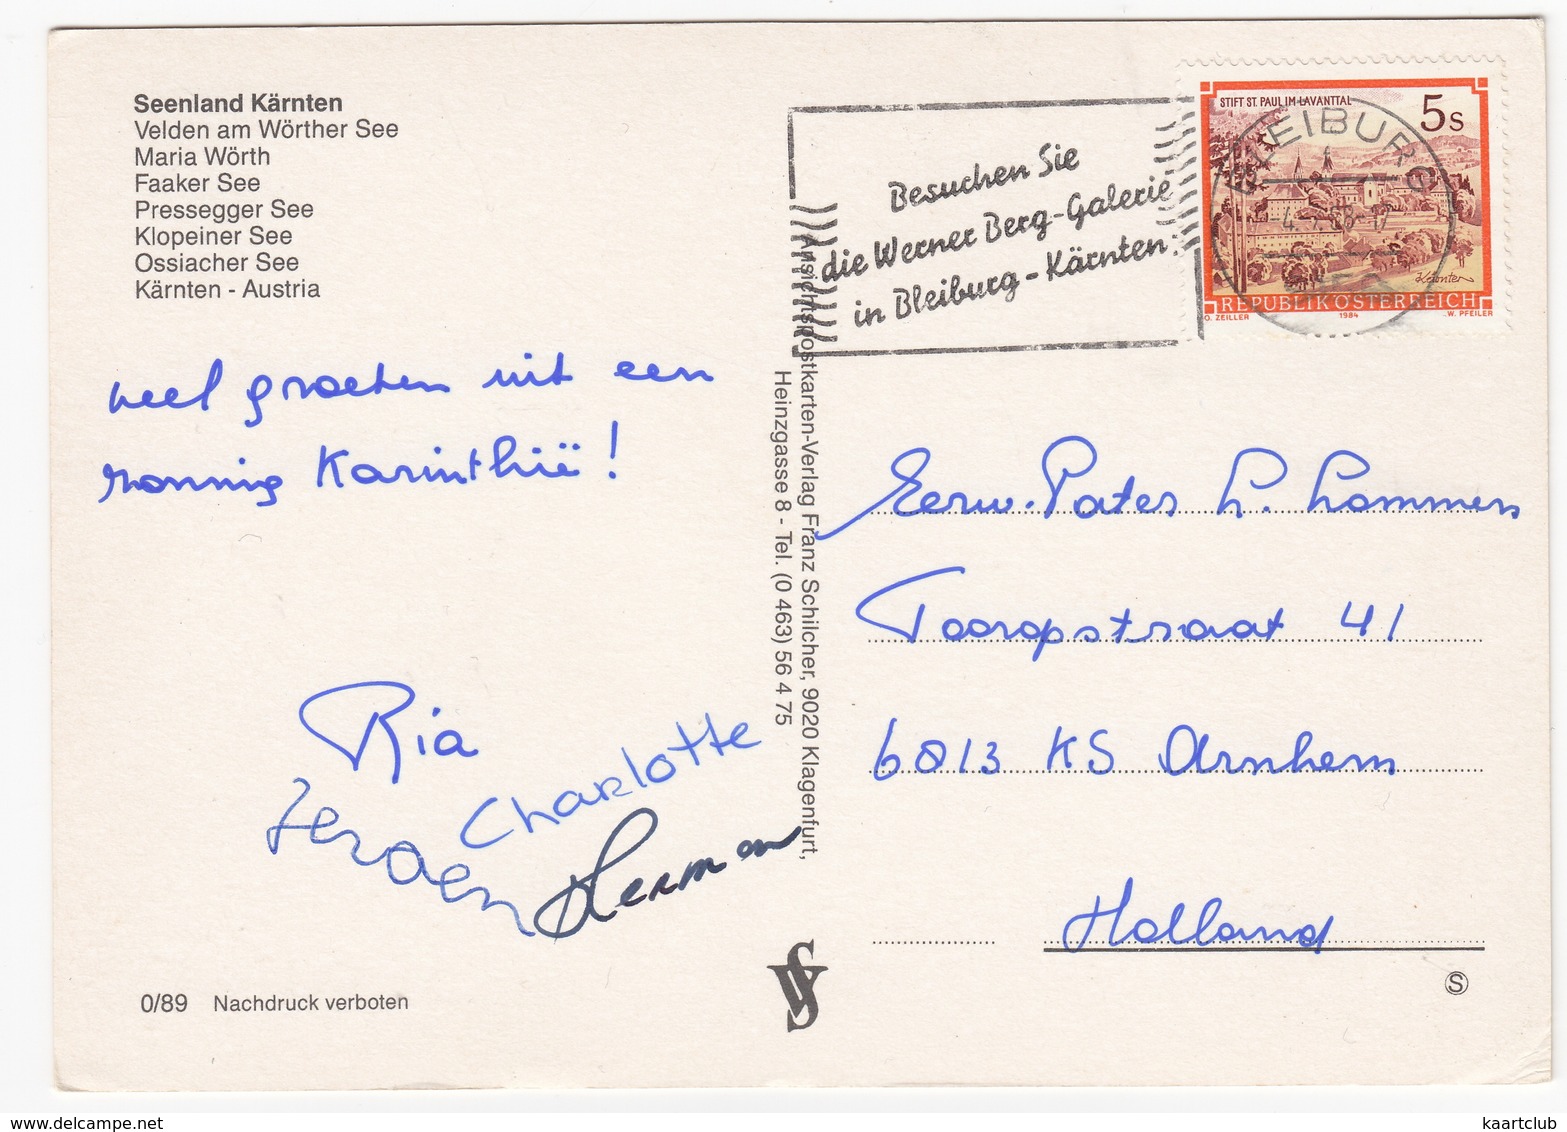 Seenland Kärnten
Velden am Wörther See
Maria Wörth
Faaker See
Pressegger See
Klopeiner See
Ossiacher See
Kärnten - Austria
veel groeten uit een
zonnig Karinthië!
Ria
Charlotte
Jeroen
Herman
0/89 Nachdruck verboten
Ansichtspostkarten-Verlag Franz Schilcher, 9020 Klagenfurt,
Heinzgasse 8 - Tel. (0 463) 56 4 75
Besuchen Sie
die Werner Berg-Galerie
in Bleiburg-Kärnten!
BLEIBURG
STIFT ST. PAUL IM LAVANTTAL
5 S
Kärnten
REPUBLIK ÖSTERREICH
O. ZEILLER 1984 W. PFEILER
Eerw. Pater L. Lommers
Tooropstraat 41
6813 KS Arnhem
Holland
S
www.delcampe.net
kaartclub